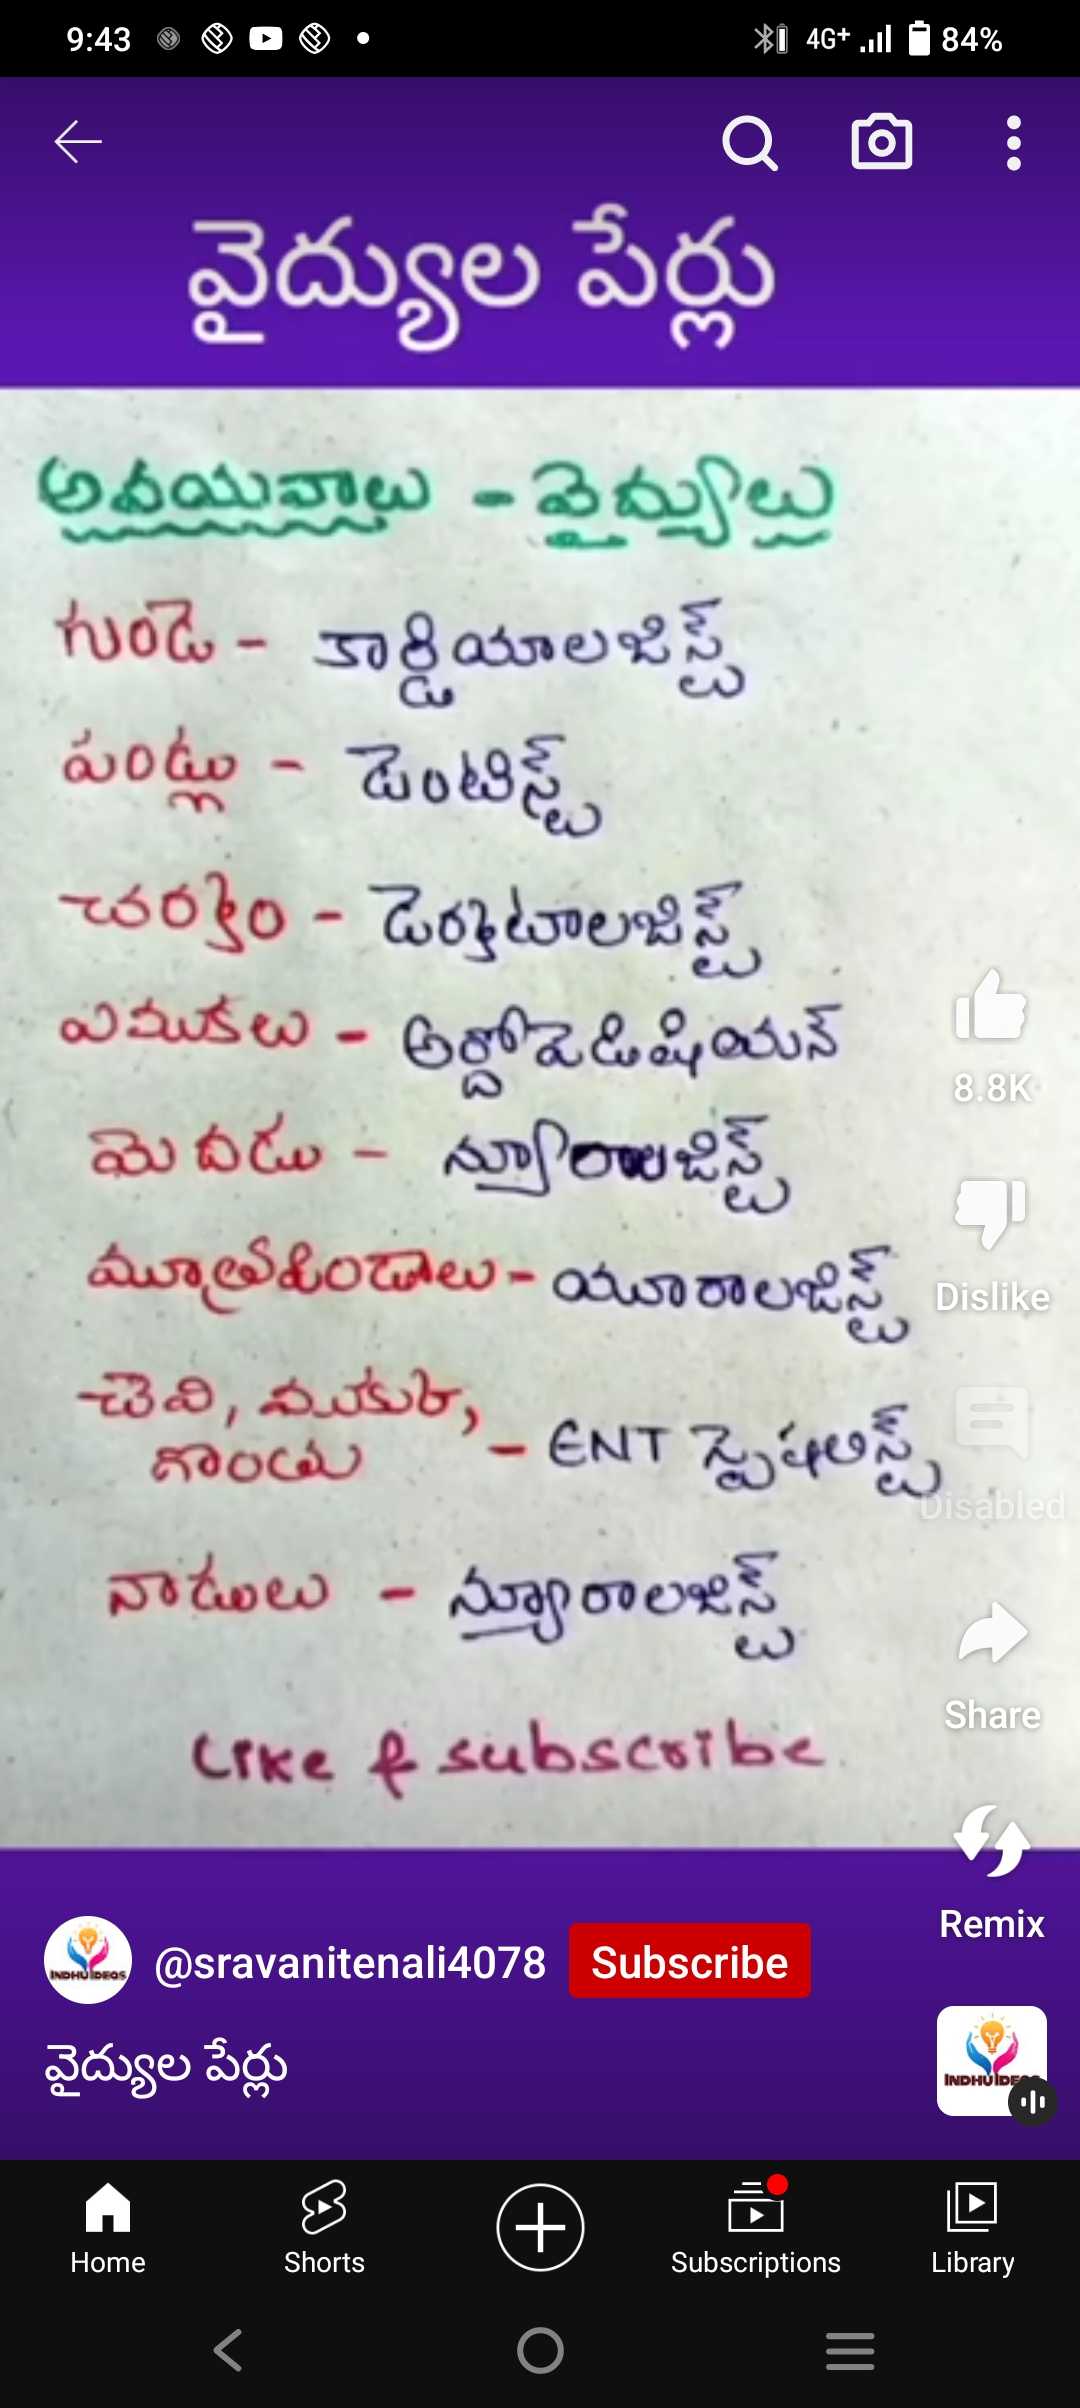 9:43
4G+ 84%
వైద్యుల పేర్లు
అవయవాలు - వైద్యులు
గుండె - కార్డియాలజిస్ట్
పండ్లు - డెంటిస్ట్
చర్మం - డెర్మటాలజిస్ట్
ఎముకలు - అర్దోపెడిషియన్
మెదడు - న్యూరాలజిస్ట్
మూత్రపిండాలు - యూరాలజిస్ట్
చెవి, ముక్కు,
గొంతు - ENT స్పెషలిస్ట్
నాడులు - న్యూరాలజిస్ట్
Like & subscribe
8.8K
Dislike
Disabled
Share
Remix
INDHU IDEAS @sravanitenali4078 Subscribe
వైద్యుల పేర్లు
Home Shorts Subscriptions Library